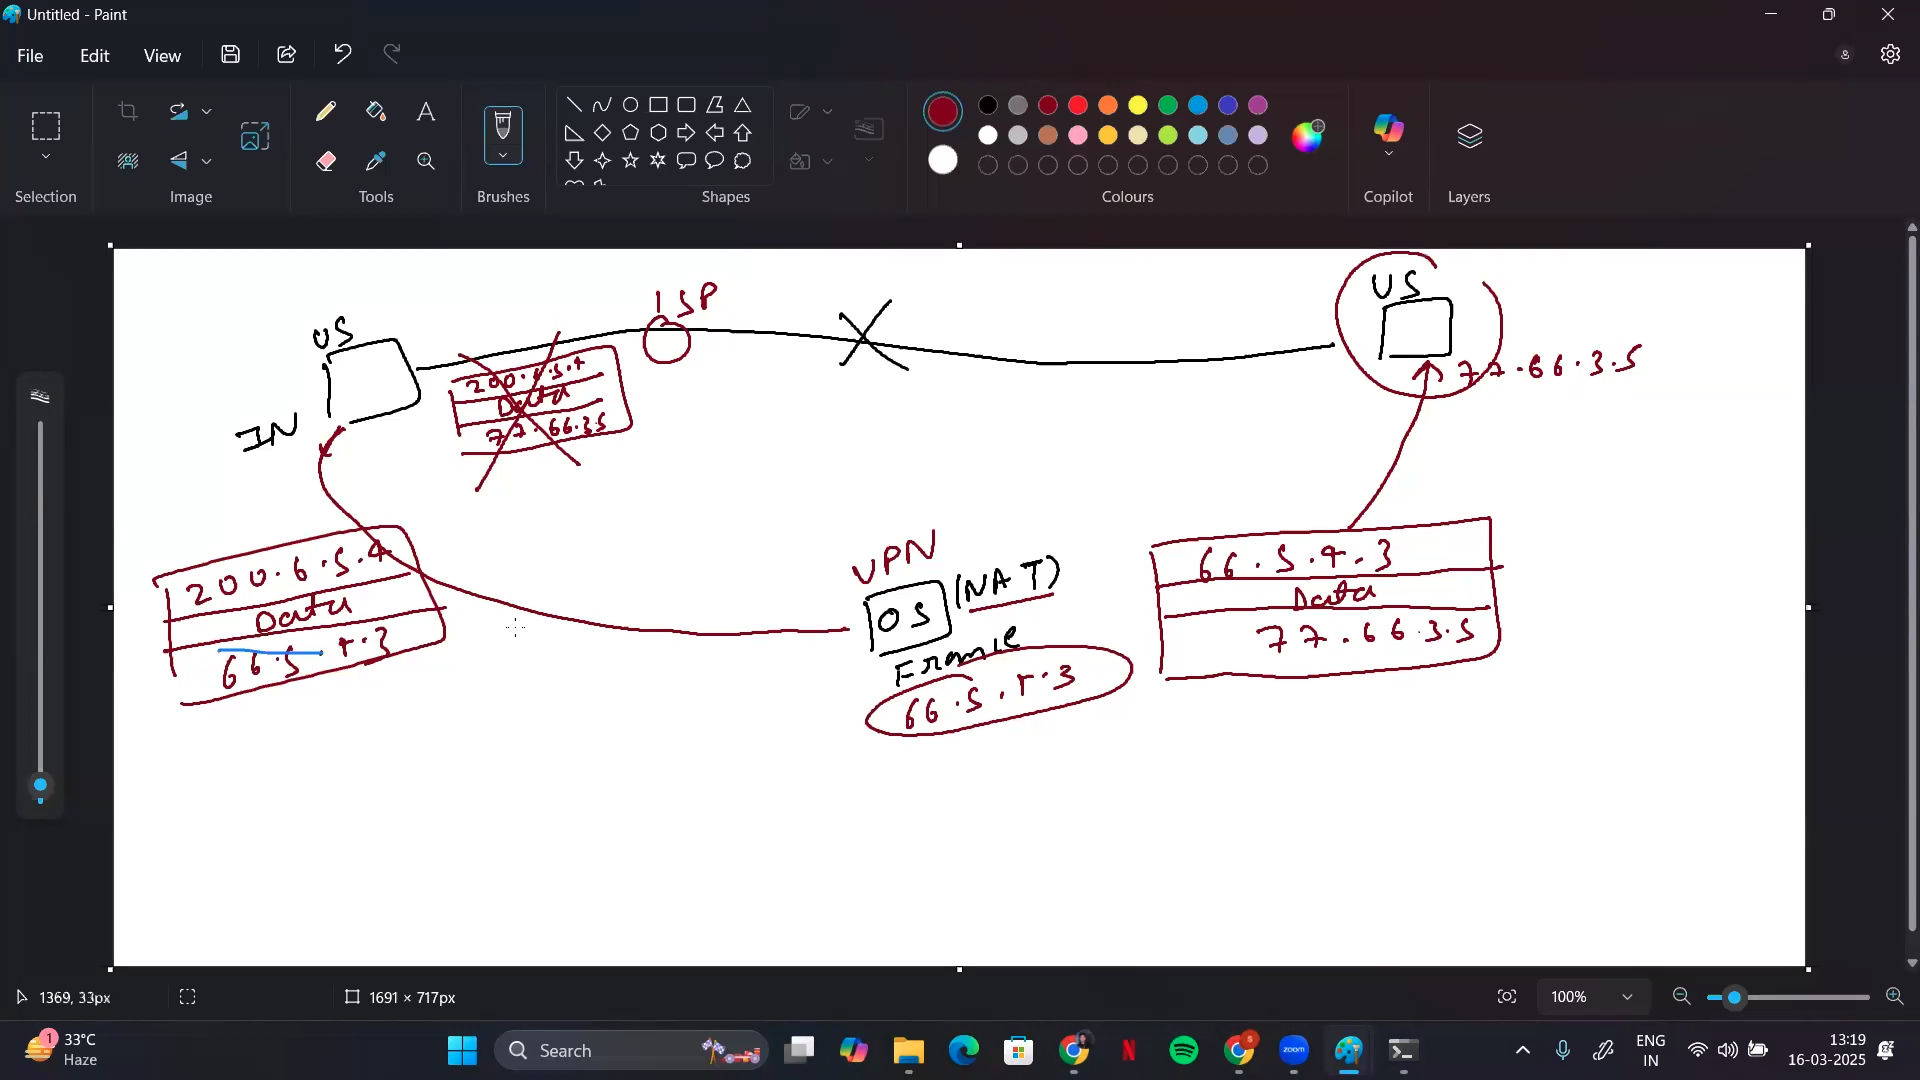 Untitled - Paint
File Edit View
Selection Image Tools Brushes Shapes Colours Copilot Layers
ISP
US
US
IN
200.6.5.4
Data
77.66.3.5
77.66.3.5
VPN
OS (NAT)
France
66.5.4.3
200.6.5.4
Data
66.5.4.3
66.5.4.3
Data
77.66.3.5
1369, 33px
1691 × 717px
100%
1
33°C
Haze
Search
zoom
ENG
IN
13:19
16-03-2025